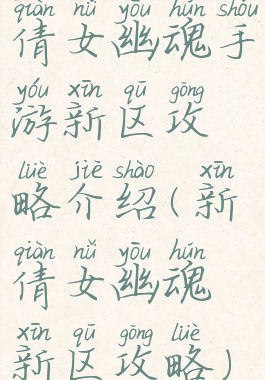 qiàn nǚ yōu hún shǒu
倩女幽魂手
yóu xīn qū gōng
游新区攻
lüè jiè shào xīn
略介绍(新
qiàn nǚ yōu hún
倩女幽魂
xīn qū gōng lüè
新区攻略)